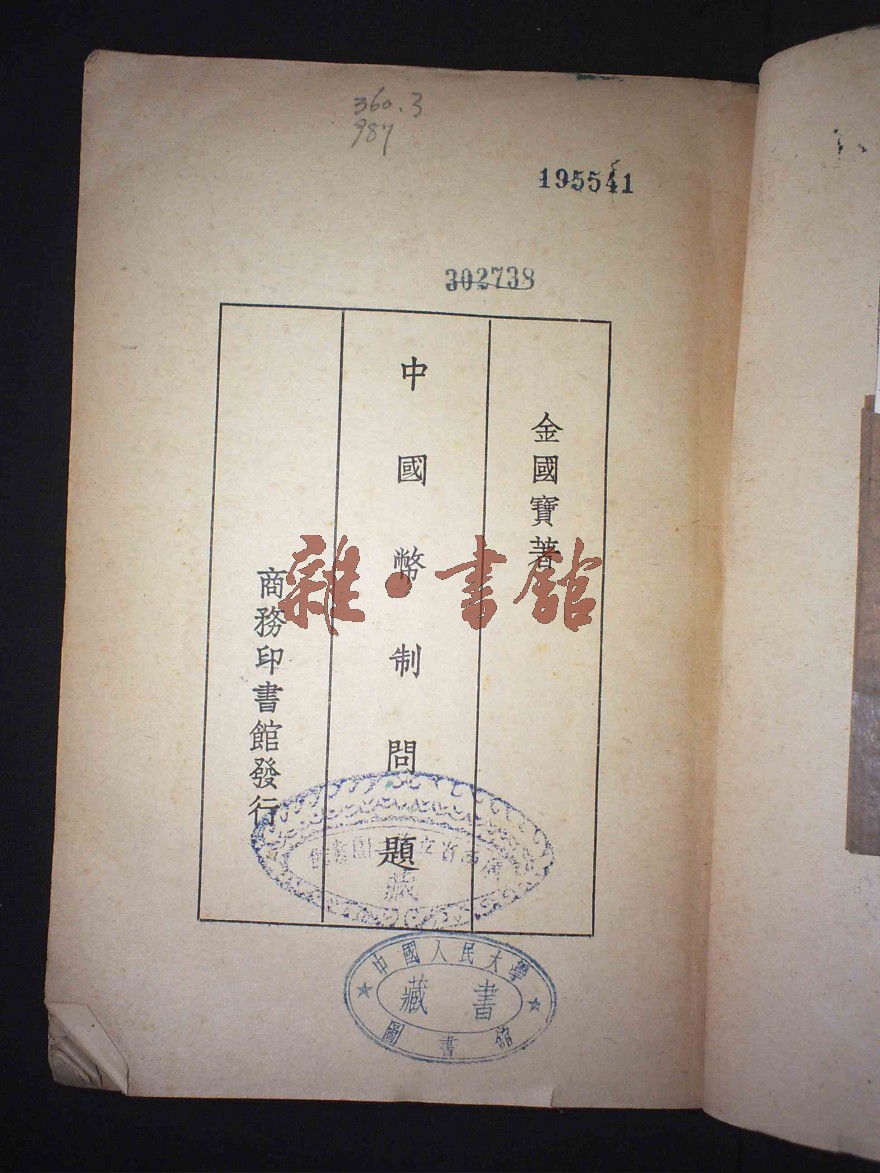 360.3
987
195541
302738
金國寶著
中國幣制問題
商務印書館發行
雜·書館
藏
中國人民大學
書藏
圖書館